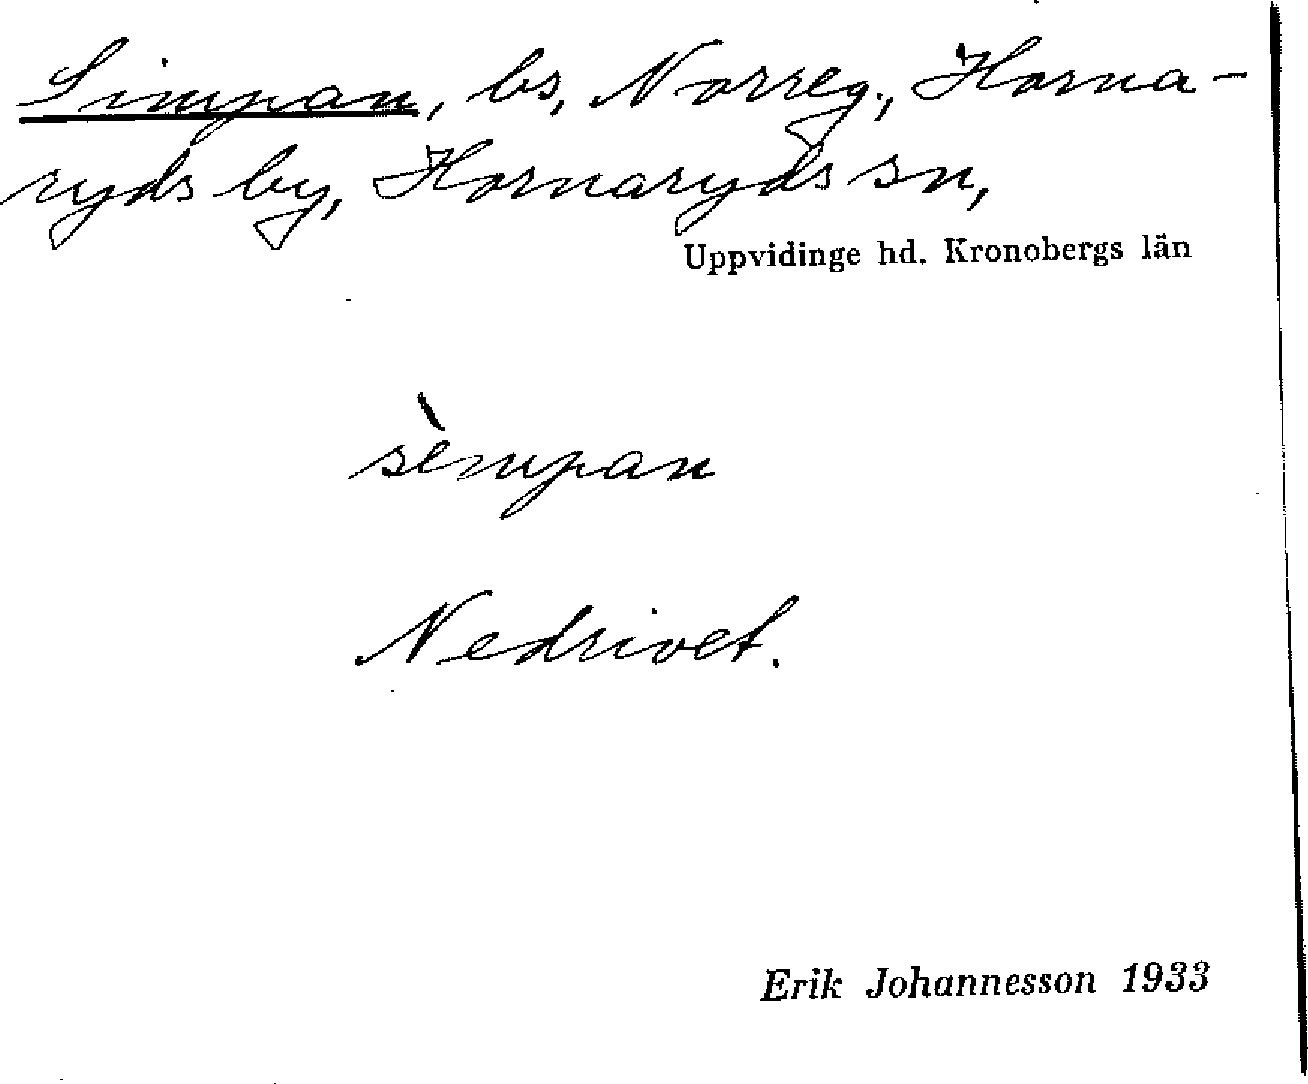 Simpan, bs, Norreg., Horna-
ryds by, Hornaryds sn,
Uppvidinge hd. Kronobergs län
sèmpan
Nedrivet.
Erik Johannesson 1933